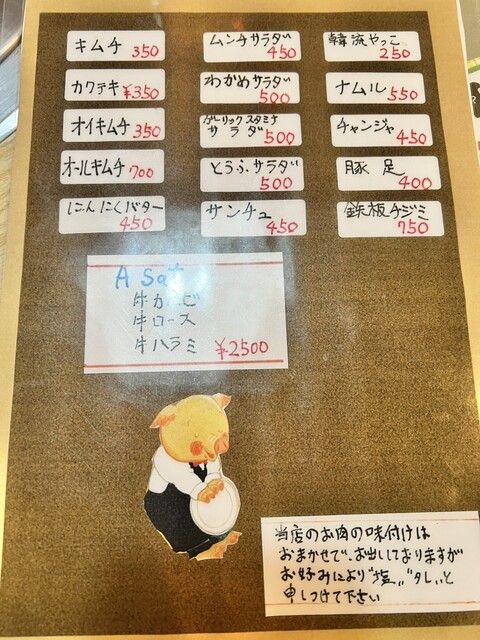 キムチ 350
カクテキ ¥350
オイキムチ 350
オールキムチ 700
にんにくバター
450
ムンチサラダ
450
わかめサラダ
500
ガーリックスタミナ
サラダ 500
とうふサラダ
500
サンチュ
450
韓流やっこ
250
ナムル 550
チャンジャ
450
豚足
400
鉄板チヂミ
750
A Set
牛カルビ
牛ロース
牛ハラミ ¥2500
当店のお肉の味付けは
おまかせで、お出ししておりますが
お好みにより"塩"、"タレ"と
申しつけて下さい